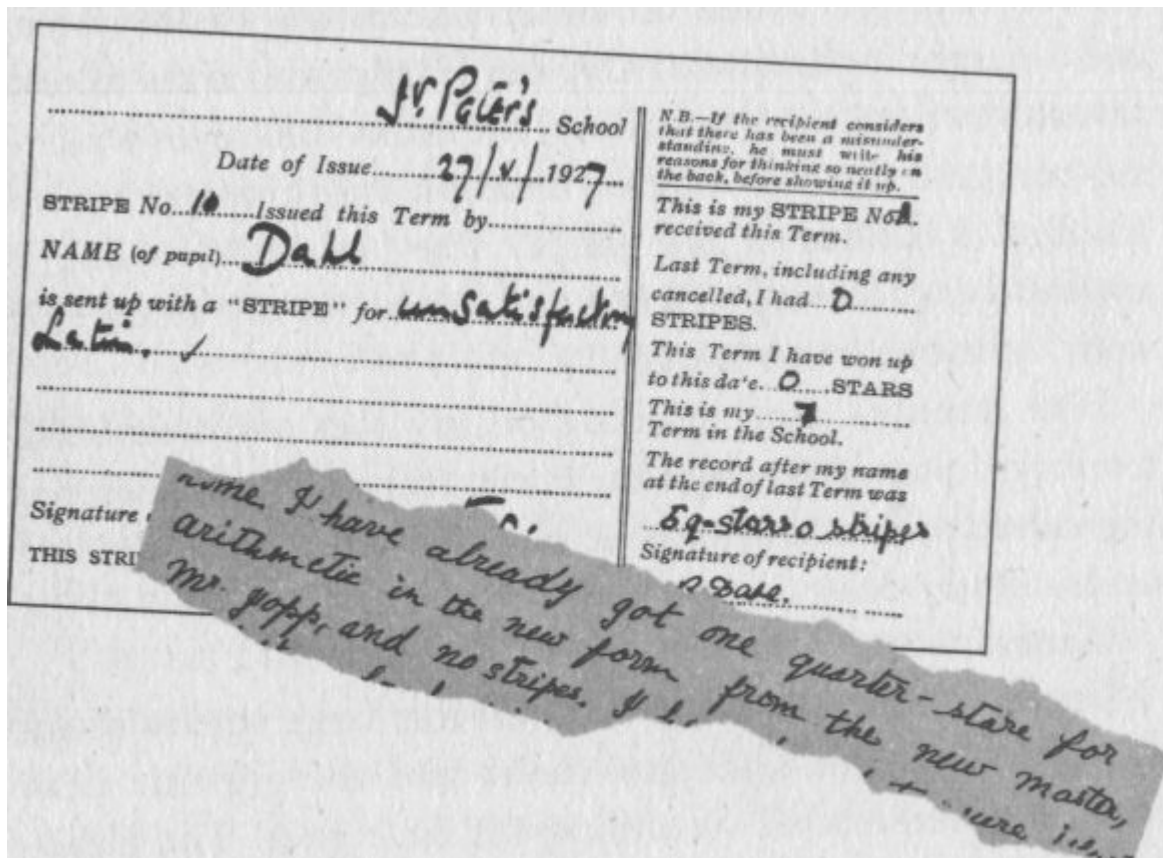 St. Peter's School
Date of Issue 27/V/1927
STRIPE No. 10 Issued this Term by
NAME (of pupil) Dahl
is sent up with a "STRIPE" for unsatisfactory
Latin. ✓
Signature
THIS STRI
N.B.—If the recipient considers
that there has been a misunder-
standing, he must write his
reasons for thinking so neatly on
the back, before showing it up.
This is my STRIPE No.
received this Term.
Last Term, including any
cancelled, I had 0
STRIPES.
This Term I have won up
to this date 0 STARS
This is my 7
Term in the School.
The record after my name
at the end of last Term was
5 q-stars 0 stripes
Signature of recipient:
R Dahl.
I have already got one quarter-stare for
arithmetic in the new form from the new master,
Mr. Yopp, and no stripes. I